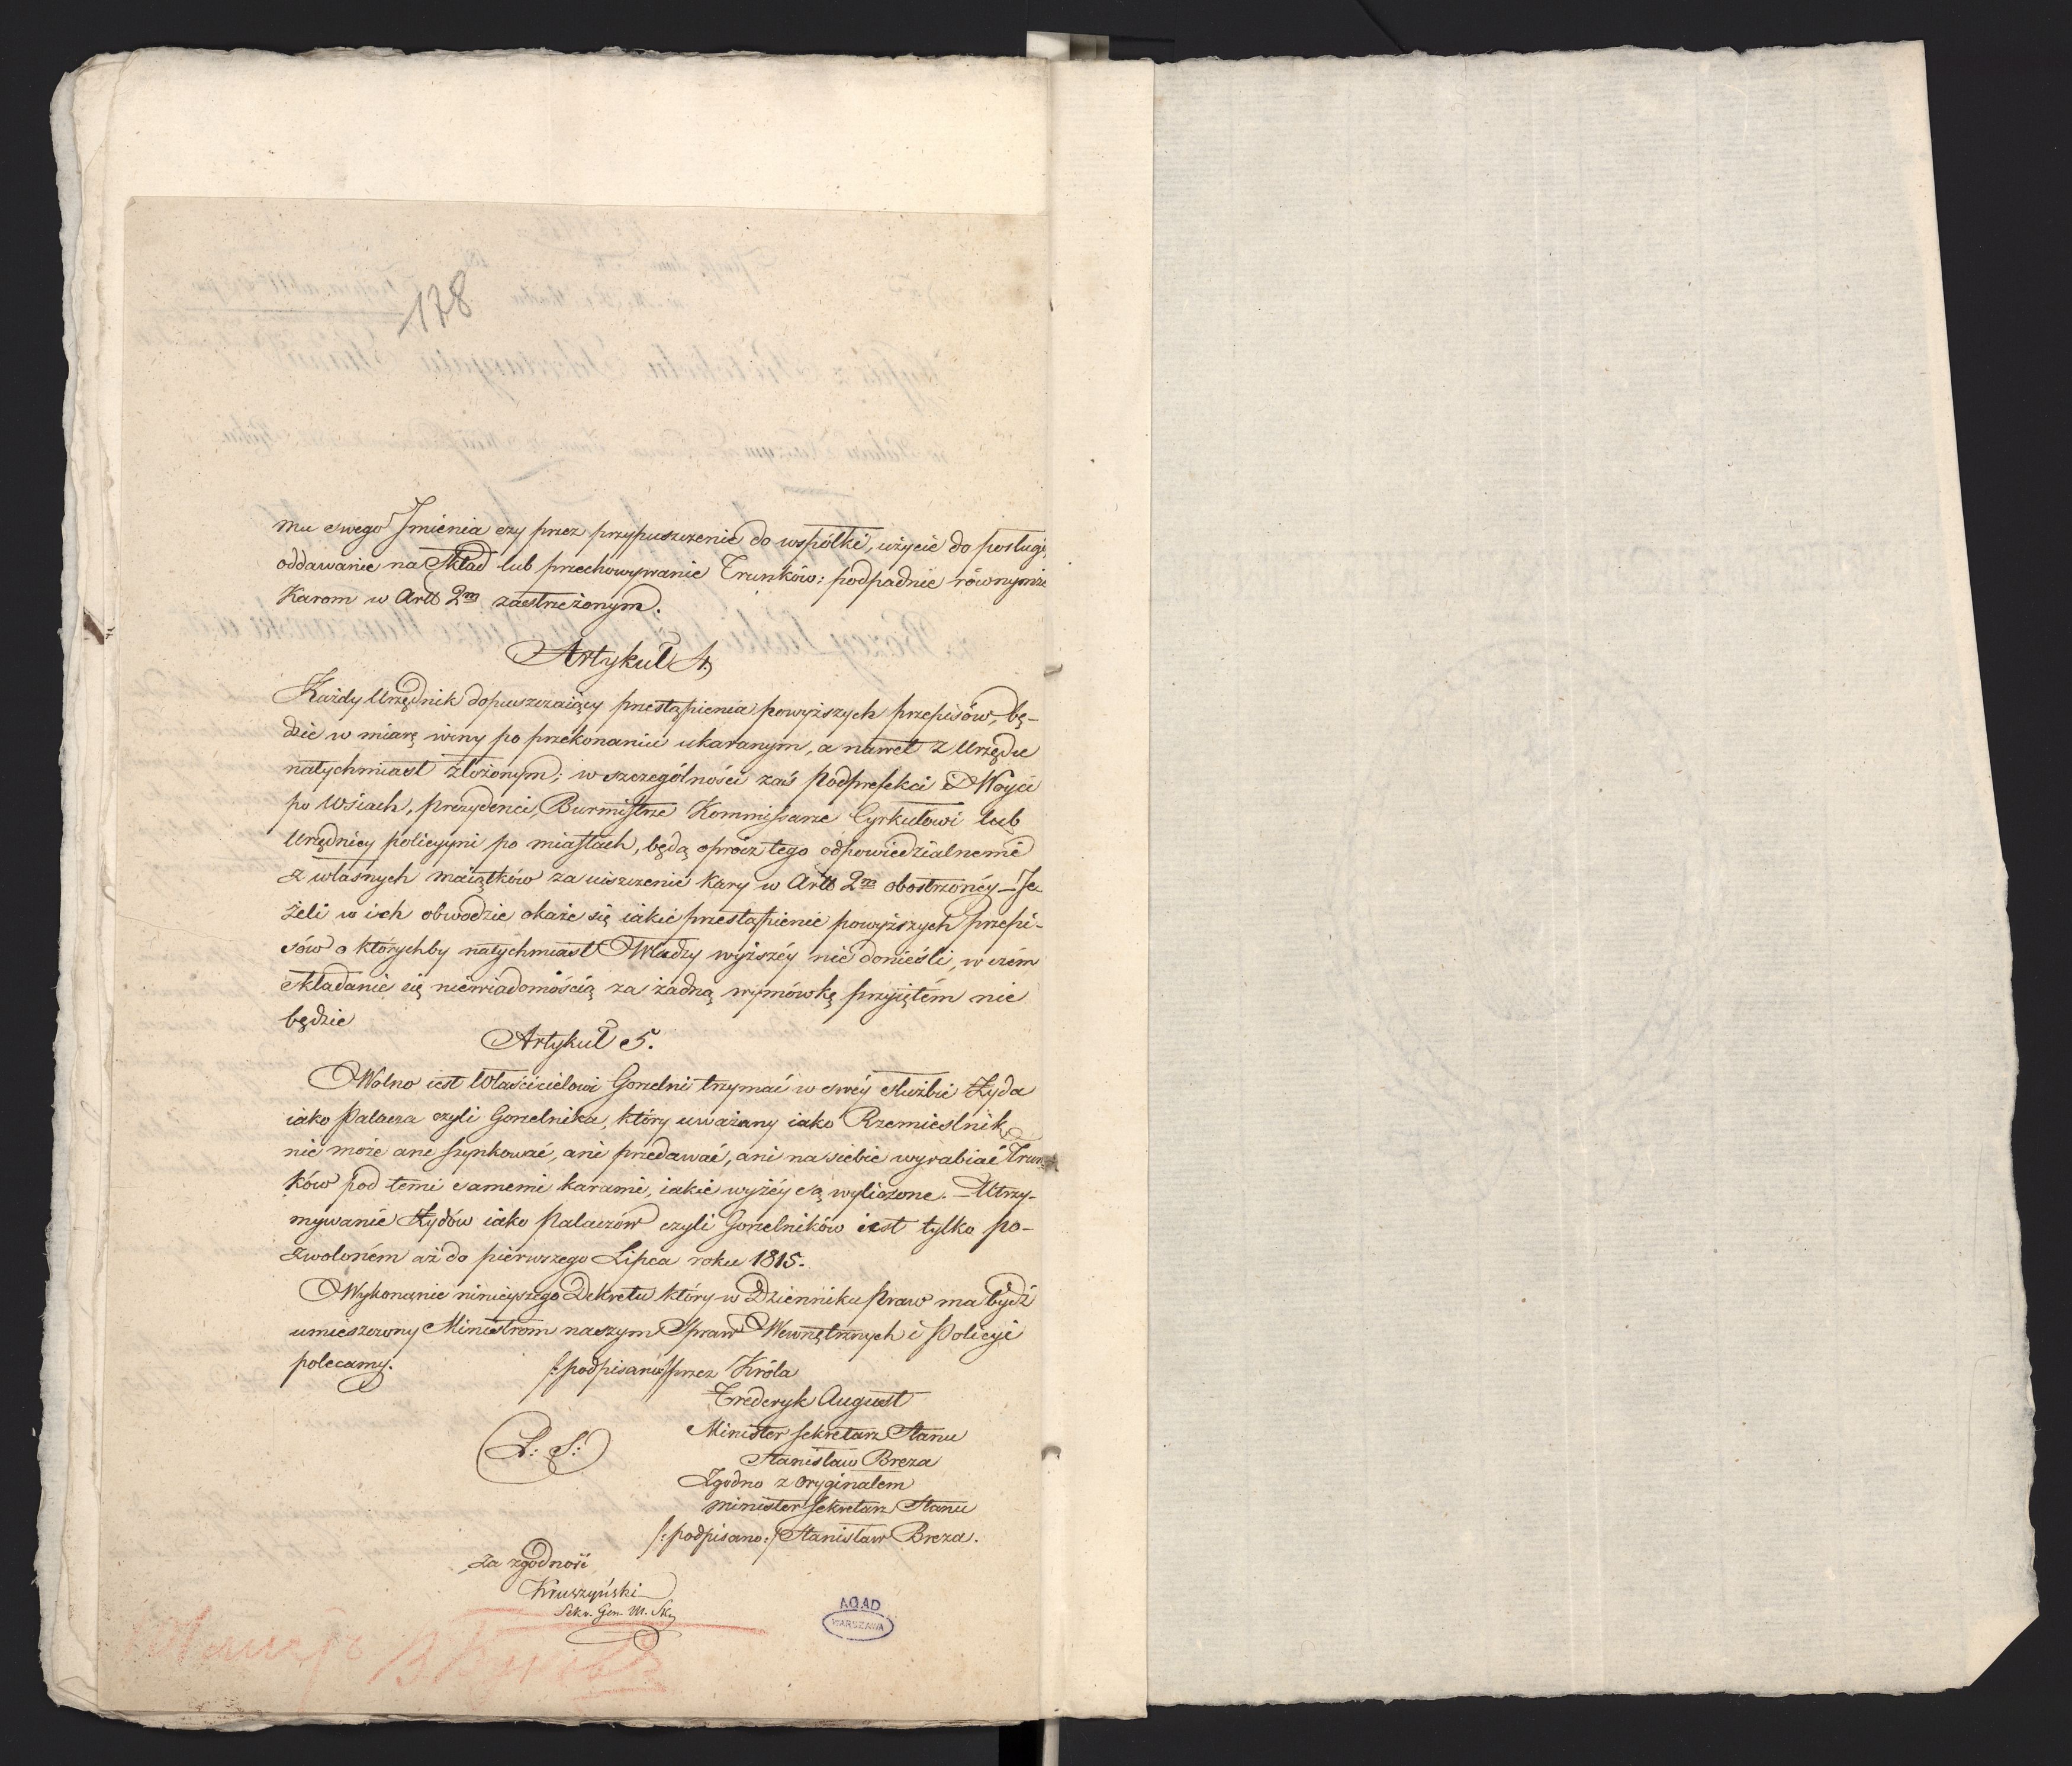 178
mu swego Jmienia czy przez przypuszczenie do wspólki, użycie do posługi,
oddawanie na Skład lub przechowywanie Trunków: podpadnie równymże
Karom w Artt 2m zastrzeżonym.
Artykuł 4.
Każdy Urzędnik dopuszczaiący przestąpienia powyższych przepisów, bę-
dzie w miarę winy po przekonaniu ukaranym, a nawet z Urzędu
natychmiast złożonym; w szczególności zaś Podprefekci i Woyci
po Wsiach, prezydenci, Burmistrze Kommissarze Cyrkułowi lub
Urzędnicy policyyni po miastach, będą oprócz tego odpowiedzialnemi
z własnych maiątków za uiszczenie kary w Artt 2m obostrzonéy – Je-
żeli w ich obwodzie okaże się iakie przestąpienie powyższych przepi-
sów o którychby natychmiast Władzy wyższéy nie donieśli, w czém
składanie się niewiadomością za żadną wymówkę przyiętém nie
będzie
Artykuł 5.
Wolno iest Właścicielowi Gorzelni trzymać w swéy służbie Żyda
iako Palacza czyli Gorzelnika, który uważany iako Rzemieslnik,
nie może ani szynkować, ani przedawać, ani na siebie wyrabiać Trun-
ków pod temi samemi karami, iakie wyżéy są wyliczone. – Utrzy-
mywanie Żydów iako Palaczów czyli Gorzelników iest tylko po-
zwoloném aż do pierwszego Lipca roku 1815.
Wykonanie ninieyszego Dekretu który w Dzienniku Praw ma bydź
umieszczony Ministrom naszym Spraw Wewnętrznych i Policyi
polecamy.
/: podpisano :/ przez Króla
Frederyk August
Minister Sekretarz Stanu
(L: S:)
Stanisław Breza
Zgodno z Oryginałem
Minister Sekretarz Stanu
/: podpisano :/ Stanisław Breza.
Za zgodność
Kruszyński
Sekr. Gen. M. Sk.
AGAD
WARSZAWA